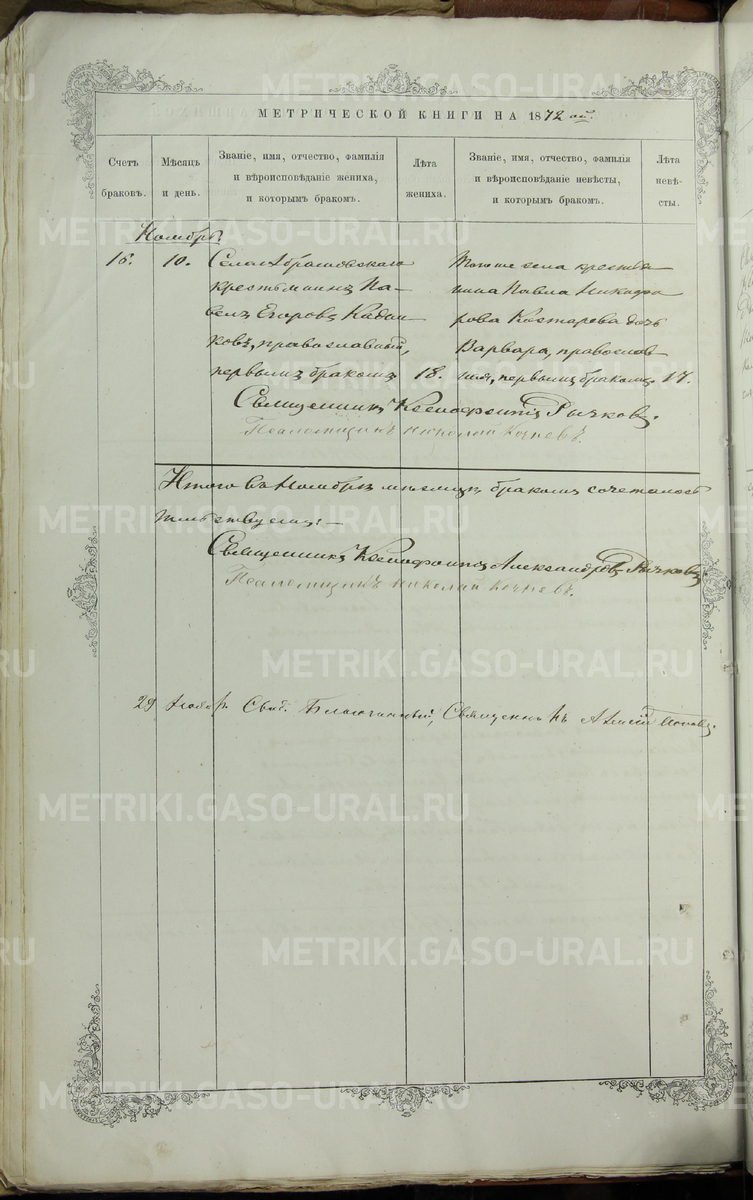 МЕТРИЧЕСКОЙ КНИГИ НА 1872 ой.
Счетъ браковъ.
Мѣсяцъ и день.
Званіе, имя, отчество, фамилія и вѣроисповѣданіе жениха, и которымъ бракомъ.
Лѣта жениха.
Званіе, имя, отчество, фамилія и вѣроисповѣданіе невѣсты, и которымъ бракомъ.
Лѣта невѣсты.
Ноябрь.
10.
Села
крестьянинъ Па-
велъ Егоровъ
ковъ, православный,
первымъ бракомъ 18.
Тогоже села крестья
нина Павла Никифо
рова Костарева дочь
Варвара, православ
ная, первымъ бракомъ. 17.
Священникъ Ксенофонтъ Рычковъ.
Псаломщикъ Николай Кочневъ.
Итого въ Ноябрѣ мѣсяцѣ бракомъ сочеталось
Священникъ Ксенофонтъ Александровъ Рычковъ
Псаломщикъ Николай Кочневъ.
29 Ноябр. Свид. Благочинный, Священникъ Алексій Поповъ.
METRIKI.GASO-URAL.RU